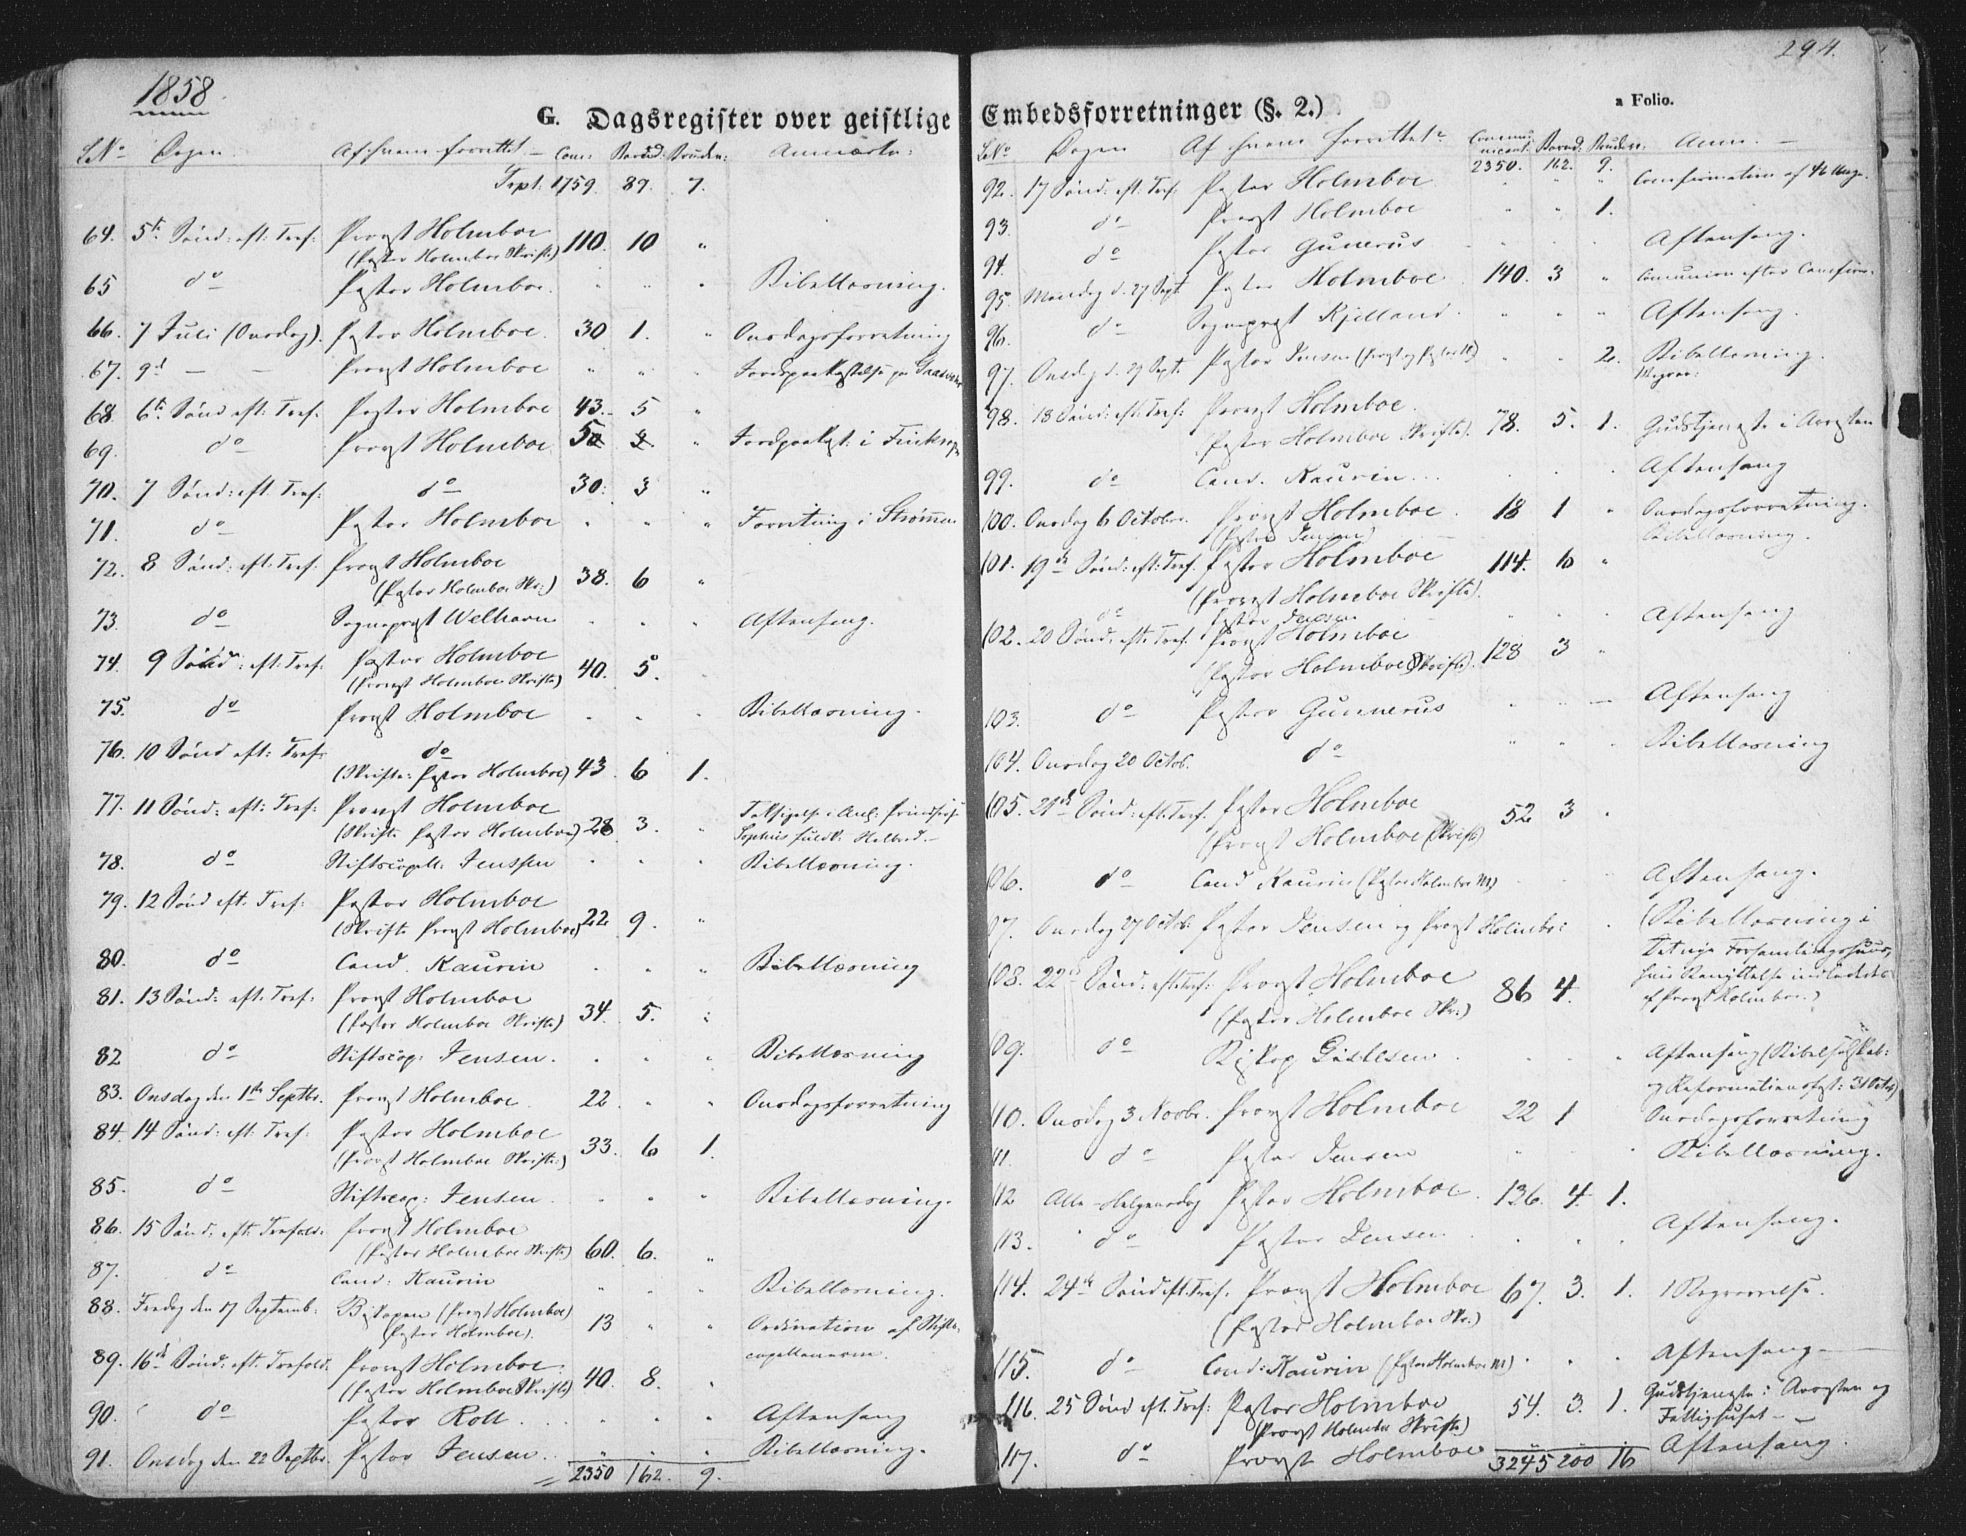 1858
G. Dagsregister over geistlige
LNo Dagen Af hvem forrettet Com: Barnd: Bruder: Anmærkn:
Trpt. 1759. 87. 7.
64. 5te Sønd: eft: Tref: Provst Holmboe 110. 10 "
(Pastor Holmboe Skrifte)
65 do Pastor Holmboe. " " " Bibellæsning.
66. 7 Juli (Onsdag). Pastor Holmboe. 30 1. " Onsdagsforretning
67. 9d — — Provst Holmboe " " " Jordpaakastelse paa
68. 6te Sønd eft: Tref: Pastor Holmboe 43. 5 "
69. do Provst Holmboe " Jordpaakast. i
70. 7 Sønd: eft: Tref: do 30. 3 "
71. do Pastor Holmboe " " " Forretning i Strømmen
72. 8 Sønd: eft: Tref: Provst Holmboe 38. 6 "
(Pastor Holmboe Skr:)
73. do Sogneprest Welhaven Aftensang.
74. 9 Sønd: eft: Tref: Pastor Holmboe 40. 5.
(Provst Holmboe Skrifte)
75. do Provst Holmboe Bibellæsning.
76. 10 Sønd eft: Tref: do 43 6 1.
(Skrifte: Pastor Holmboe)
77. 11 Sønd: eft: Tref: Provst Holmboe 28 3. Taksigelse i Anl: Prindsesse
(Skrifte Pastor Holmboe) Sophies
78. do Stiftscapell: Jenssen Bibellæsning.
79. 12 Sønd eft. Tref: Pastor Holmboe 22 9. "
(Skrifte Provst Holmboe)
80. do Cand. Kaurin Bibellæsning
81. 13 Sønd: eft. Tref: Provst Holmboe 34. 5.
(Pastor Holmboe Skrifte)
82 do Stiftscap: Jensen. Bibellæsning
83. Onsdag den 1ste Septbr. Provst Holmboe. 22. Onsdagsforretning
84. 14 Sønd: eft. Tref: Pastor Holmboe 33. 6 1.
(Provst Holmboe Skrifte)
85. do Stiftscap: Jensen. Bibellæsning.
86. 15 Sønd: eft. Trefold. Provst Holmboe 60. 6.
(Pastor Holmboe Skrifte)
87. do Cand: Kaurin Bibellæsning.
88. Fredag den 17 Septemb: Biskopen (Provst Holmboe) 13 " " Ordination af Stifts-
(Pastor Holmboe). capellanerne.
89. 16de Sønd: eft. Trefold. Provst Holmboe. 40. 8.
(Pastor Holmboe Skrifte)
90. do Pastor Roll. Aftensang
91. Onsdag den 22 Septbr. Pastor Jensen. " " " Bibellæsning.
2350 162. 9.
294.
Embedsforretninger (§. 2.)
a Folio.
LNo Dagen Af hvem forrettet Communicant. Barnd: Bruder: Anm.
2350. 162. 9.
92. 17 Sønd. eft. Tref. Pastor Holmboe Confirmation af 46 Unge.
93. do Provst Holmboe " " 1.
94. do Pastor Gunerus Aftensang.
95. Mandag d. 27 Sept. Pastor Holmboe 140. 3 " Comunion efter Confirm.
96. do Sogneprest Kjelland. " " " Aftensang.
97. Onsdag d. 29 Sept. Pastor Jensen 2. Bibellæsning.
98. 18 Sønd: eft. Tref: Provst Holmboe. 78. 5. 1. Gudstjeneste i Arresten
(Pastor Holmboe Skrifte).
99. do Cand. Kaurin Aftensang
100. Onsdag 6 October. Provst Holmboe. 18 1 " Onsdagsforretning.
(Pastor Jensen) Bibellæsning.
101. 19de Sønd: eft: Tref. Pastor Holmboe 114. 6 "
(Provst Holmboe Skrifte).
do Pastor Jensen Aftensang
102. 20 Sønd: eft. Tref. Provst Holmboe 128 3
(Pastor Holmboe Skrifte).
103. do Pastor Gunnerus Aftensang
104. Onsdag 20 Octob. do " " " Bibellæsning
105. 21de Sønd: eft. Tref. Pastor Holmboe 52 3
(Provst Holmboe Skrift)
106. do Cand Kaurin (Pastor Holmboe M) Aftensang.
07. Onsdag 27 Octbr. Pastor Jensen og Provst Holmboe (Bibellæsning i
Det nye Forsamlingshuus,
08. 22d Sønd: eft. Tref: Provst Holmboe 86 4. hvis Benyttelse indlededes
(Pastor Holmboe Skr:) af Provst Holmboe.)
09. do Biskop Gislesen. Aftensang (Bibelselskab:
og Reformationsfest: 31 Octbr)
110. Onsdag 3 Novbr. Provst Holmboe 22 1 Onsdagsforretning
11. do Pastor Jensen Bibellæsning.
112 Alle-Helgensdag Pastor Holmboe. 136. 4. 1.
113. do Pastor Jensen Aftensang.
114. 24de Sønd eft. Tref. Provst Holmboe 67. 3. 1. 1 Begravelse.
(Pastor Holmboe Skr.)
115. do Cand: Kaurin (Pastor Holmboe M) Aftensang
116. 25 Sønd eft. Tref: Pastor Holmboe 54. 3. 1. Gudstjeneste i Arresten og
(Provst Holmboe Skrifte) Fattighuset
117. do Provst Holmboe " " " Aftensang.
3245 200 16